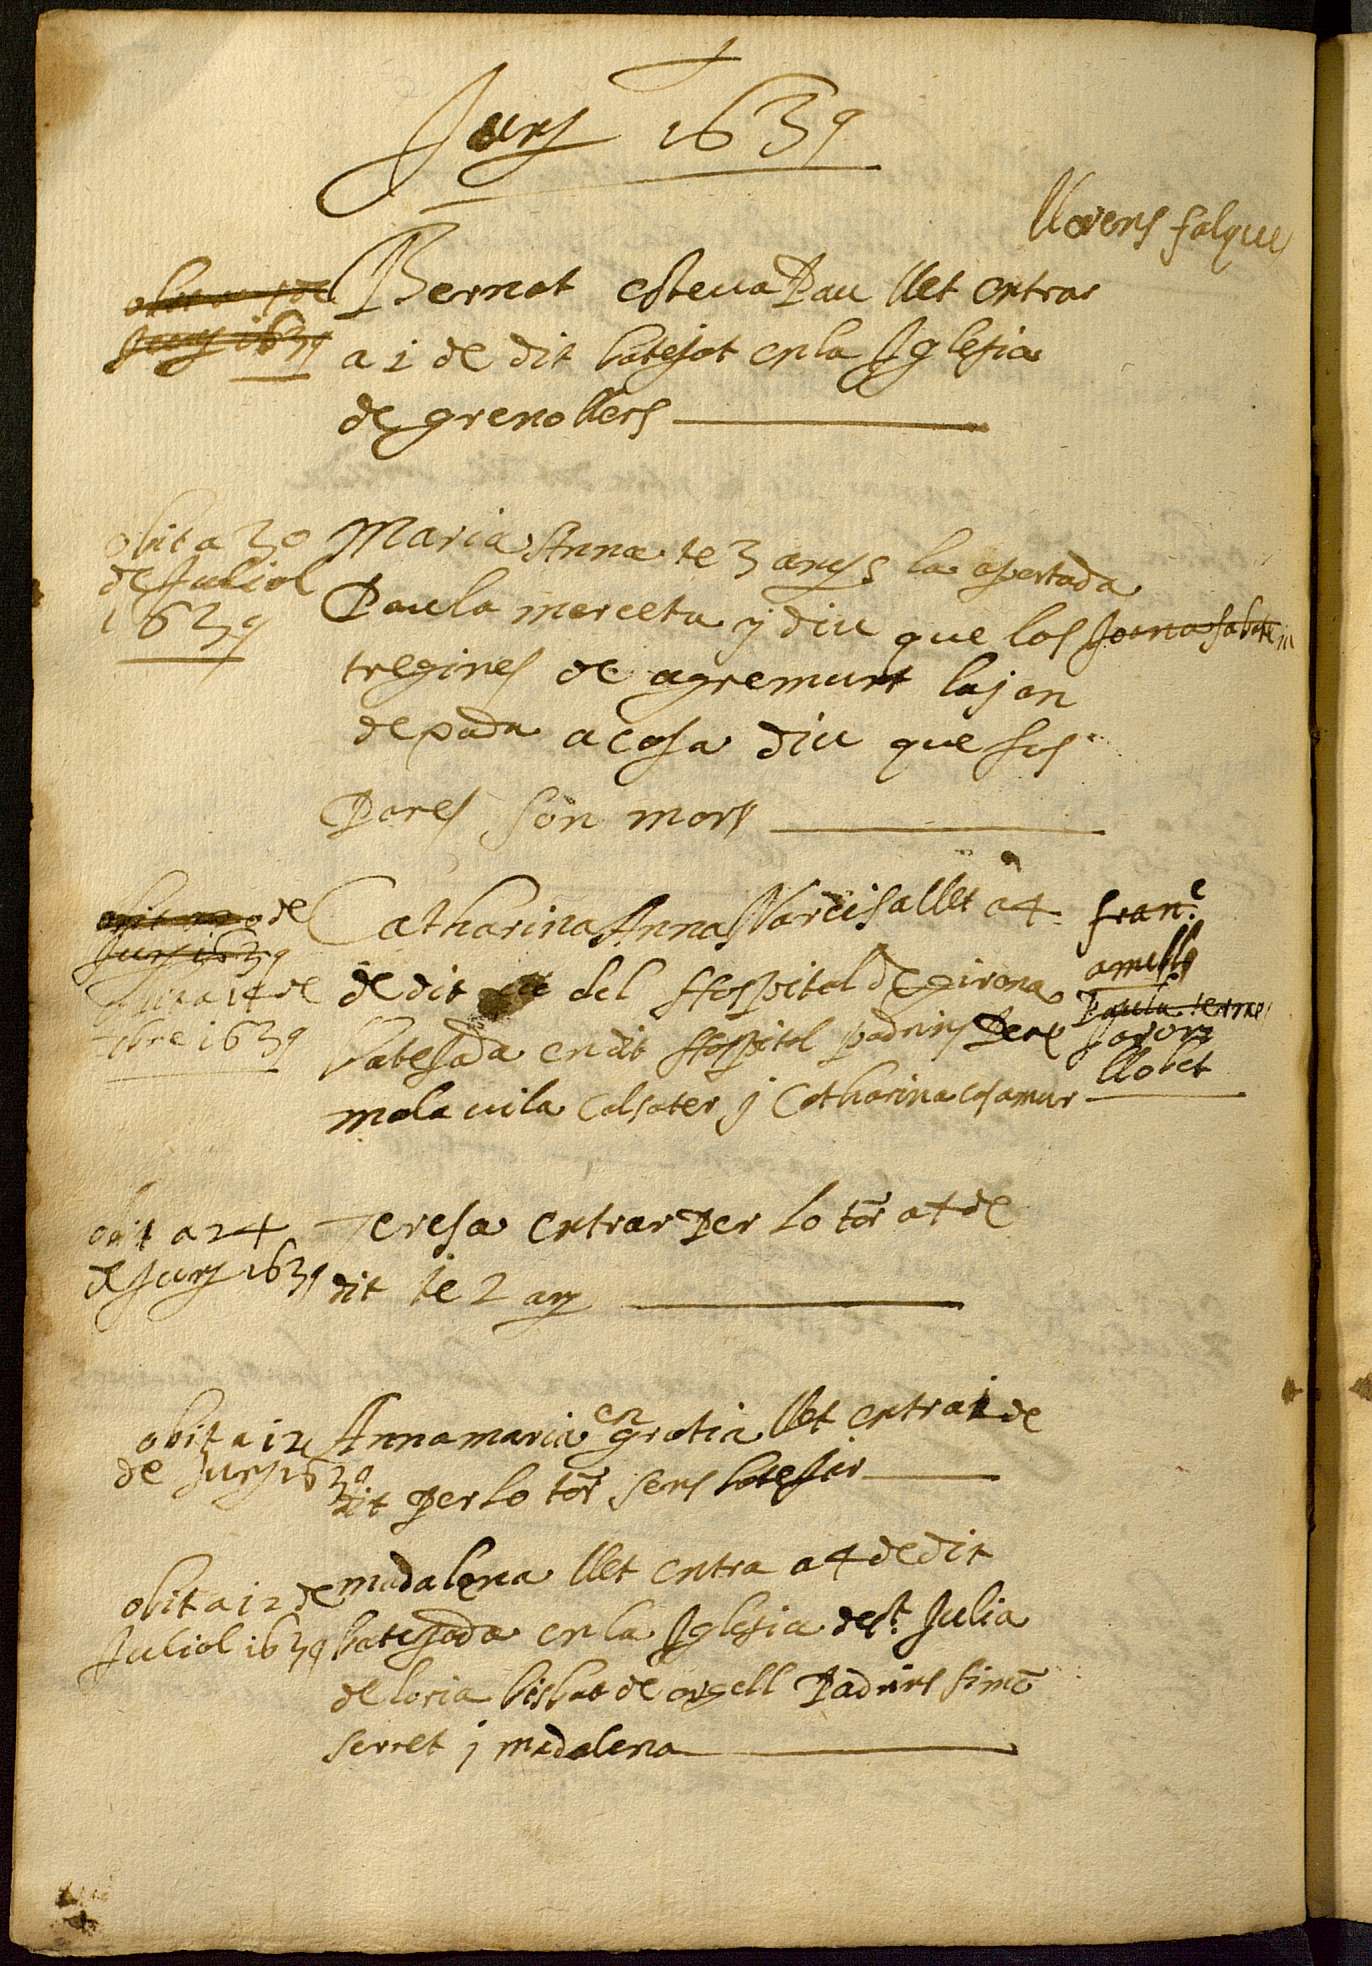 Juny 1639
llorens falgue
obit a de
Juny 1639
Bernat esteva Pau llet entrar
a 1 de dit batejat en la Iglesia
de grenollers
obit a 30
de Juliol
1639
Maria Anna te 3 anys la aportada
Paula merceta y diu que los Joana sabate
tregines de agremunt la jan
de pada a cosa diu que sos
Pares son mors
obit a de
Juny 1639
a 14 de
obre 1639
Catharina Anna Narcisa llet a 4
de dit del Hospital de girona
batejada en dit Hospital padrins Pere
mola vila calsater y Catharina casamur
fran.c
amell
Paula
llobet
obit a 24
de Juny 1639
Teresa entrar per lo tor a 4 de
dit te 2 any
obit a 12
de Juny 1639
Anna maria en gratia llet entra 1 de
dit per lo tor sens batejar
obit a 12 de
Juliol 1639
madalena llet entra a 4 de dit
batejada en la Iglesia de st. Julia
de loria bisbat de orgell Padrins simo
serret y madalena